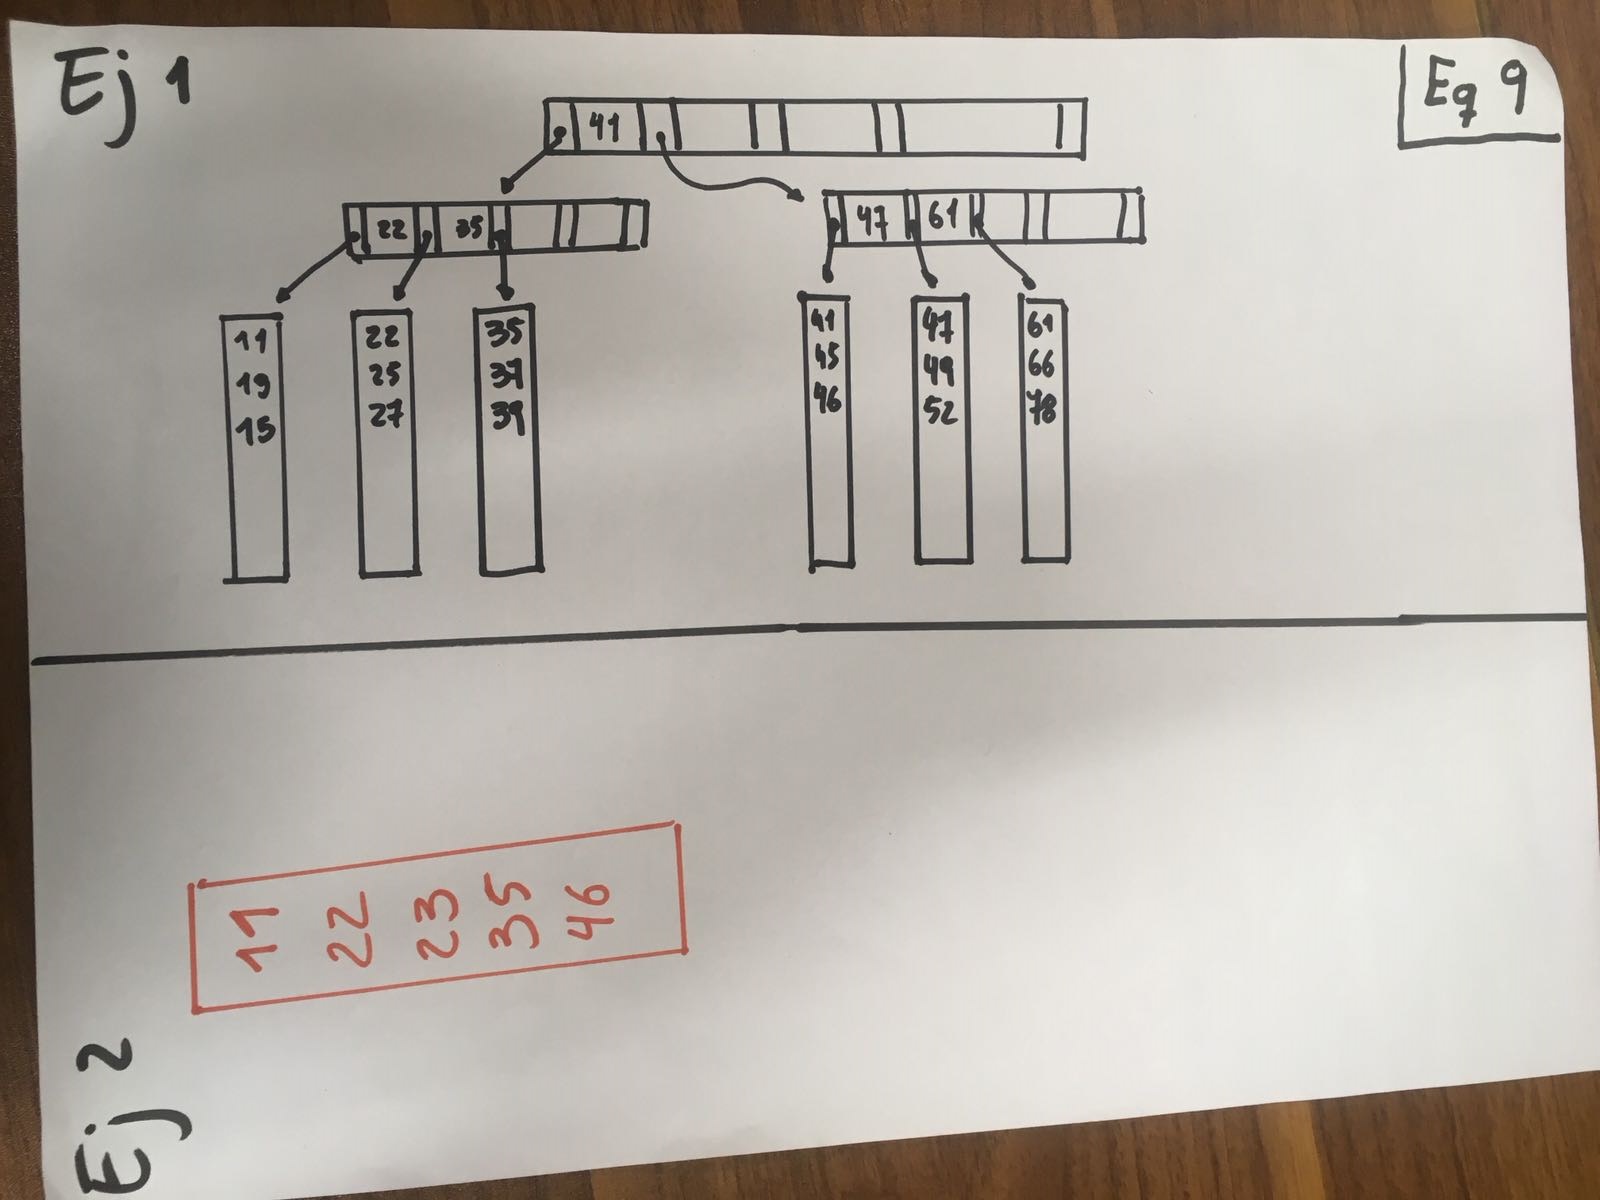 Ej 1
Eq 9
41
22 35
47 61
11
19
15
22
25
27
35
37
39
41
45
46
47
49
52
61
66
78
Ej 2
11
22
23
35
46